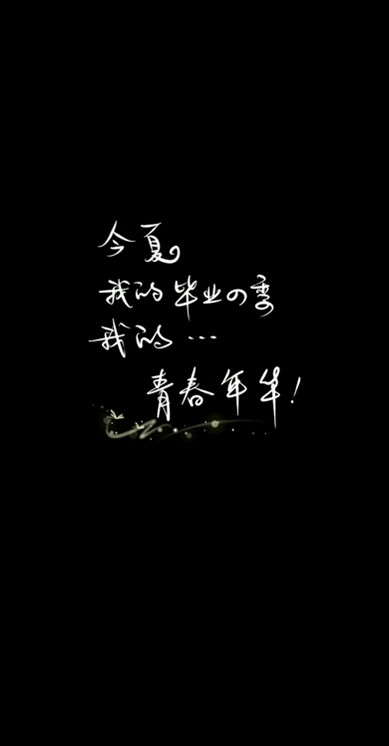 今夏
我的毕业の季
我的…
青春年华!